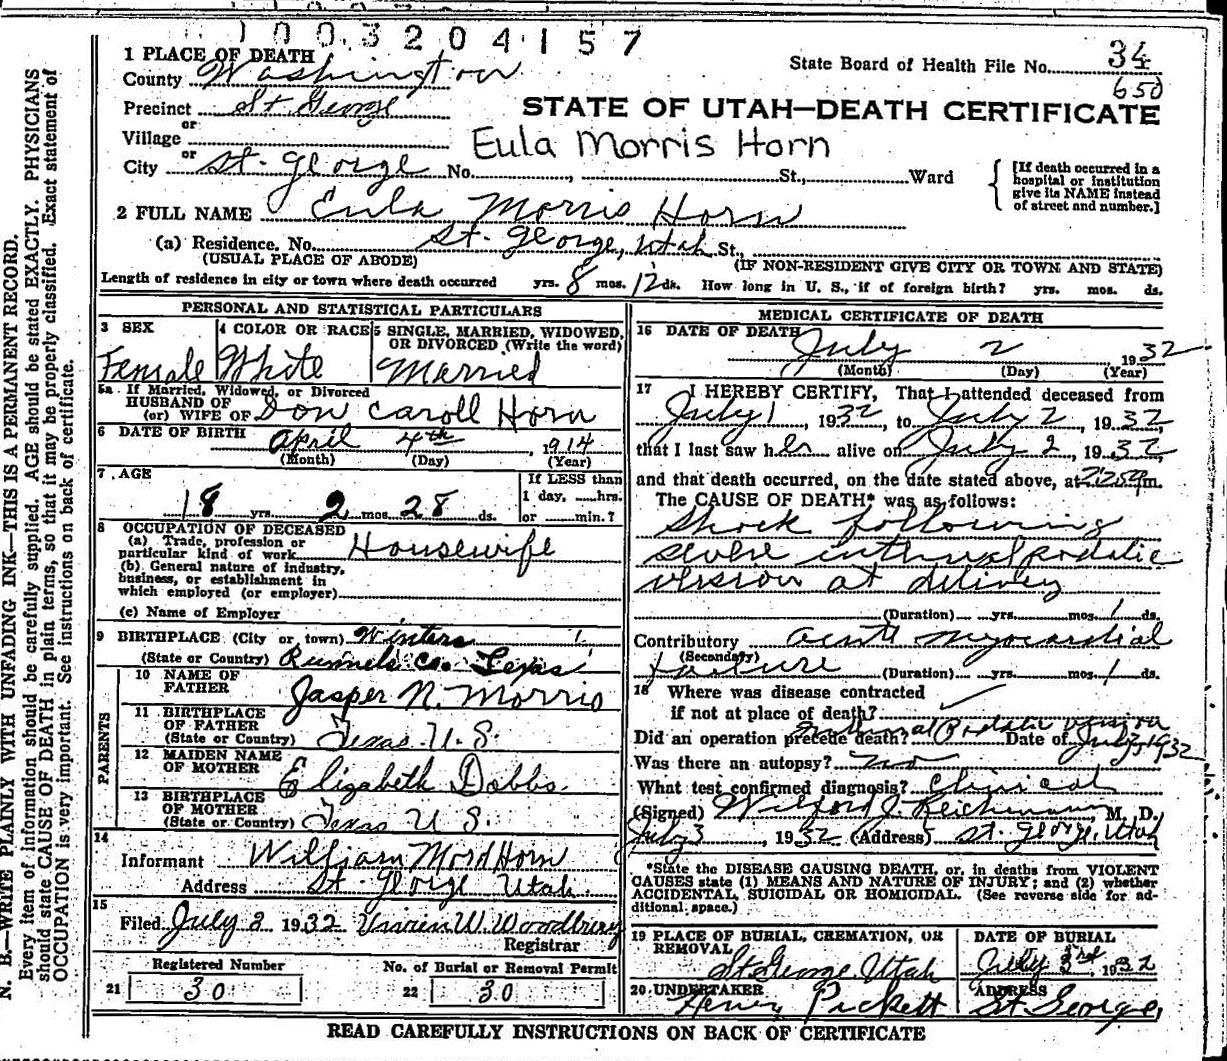 1003204157
1 PLACE OF DEATH
County Washington
State Board of Health File No. 34
650
Precinct St George
STATE OF UTAH—DEATH CERTIFICATE
or
Village
Eula Morris Horn
or
City St. George No. , St., Ward
{ [If death occurred in a
hospital or institution
give its NAME instead
of street and number.]
2 FULL NAME Eula Morris Horn
(a) Residence. No. St. George, Utah St.,
(USUAL PLACE OF ABODE) (IF NON-RESIDENT GIVE CITY OR TOWN AND STATE)
Length of residence in city or town where death occurred yrs. 8 mos. 12 ds. How long in U. S., if of foreign birth? yrs. mos. ds.
PERSONAL AND STATISTICAL PARTICULARS
3 SEX
Female
4 COLOR OR RACE
White
5 SINGLE, MARRIED, WIDOWED,
OR DIVORCED (Write the word)
Married
5a If Married, Widowed, or Divorced
HUSBAND OF
(or) WIFE OF Don Caroll Horn
6 DATE OF BIRTH April 4th, 1914
(Month) (Day) (Year)
7 AGE
18 yrs. 2 mos. 28 ds.
If LESS than
1 day, ......hrs.
or ......min.?
8 OCCUPATION OF DECEASED
(a) Trade, profession or
particular kind of work Housewife
(b) General nature of industry,
business, or establishment in
which employed (or employer)
(c) Name of Employer
9 BIRTHPLACE (City or town) Winters
(State or Country) Runnels Co. Texas
PARENTS
10 NAME OF
FATHER Jasper N. Morris
11 BIRTHPLACE
OF FATHER
(State or Country) Texas U. S.
12 MAIDEN NAME
OF MOTHER Elizabeth Dobbs
13 BIRTHPLACE
OF MOTHER
(State or Country) Texas U. S.
14
Informant William Mord Horn
Address St. George Utah.
15
Filed July 2 1932 Vivien W. Woodbury
Registrar
Registered Number
21 30
No. of Burial or Removal Permit
22 30
MEDICAL CERTIFICATE OF DEATH
16 DATE OF DEATH
July 2 1932
(Month) (Day) (Year)
17 I HEREBY CERTIFY, That I attended deceased from
July 1, 1932, to July 2, 1932
that I last saw her alive on July 2, 1932,
and that death occurred, on the date stated above, at m.
The CAUSE OF DEATH* was as follows:
Shock following
severe internal podalic
version at delivery
(Duration) yrs. mos. 1 ds.
Contributory acute myocardial
(Secondary)
failure (Duration) yrs. mos. 1 ds.
18 Where was disease contracted
if not at place of death?
Did an operation precede death? Internal Podalic version Date of July 2, 1932
Was there an autopsy? no
What test confirmed diagnosis? Clinical
(Signed) Wilford J. Reichmann, M. D.
July 3, 1932 (Address) St. George, Utah
*State the DISEASE CAUSING DEATH, or, in deaths from VIOLENT
CAUSES state (1) MEANS AND NATURE OF INJURY; and (2) whether
ACCIDENTAL, SUICIDAL OR HOMICIDAL. (See reverse side for ad-
ditional space.)
19 PLACE OF BURIAL, CREMATION, OR
REMOVAL
St George Utah
DATE OF BURIAL
July 3rd, 1932
20 UNDERTAKER
Henry Pickett
ADDRESS
St George,
READ CAREFULLY INSTRUCTIONS ON BACK OF CERTIFICATE
N. B.—WRITE PLAINLY WITH UNFADING INK—THIS IS A PERMANENT RECORD.
Every item of information should be carefully supplied. AGE should be stated EXACTLY. PHYSICIANS
should state CAUSE OF DEATH in plain terms, so that it may be properly classified. Exact statement of
OCCUPATION is very important. See instructions on back of certificate.